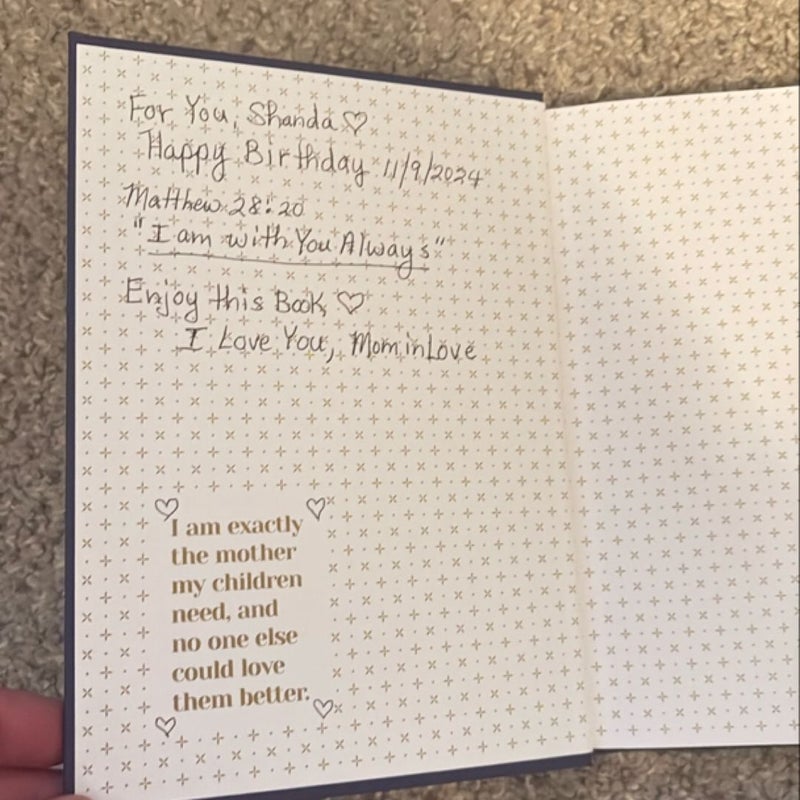 For You, Shanda ♡
Happy Birthday 11/9/2024
Matthew 28:20
"I am with You Always"
Enjoy this Book ♡
I Love You, MominLove
I am exactly
the mother
my children
need, and
no one else
could love
them better.